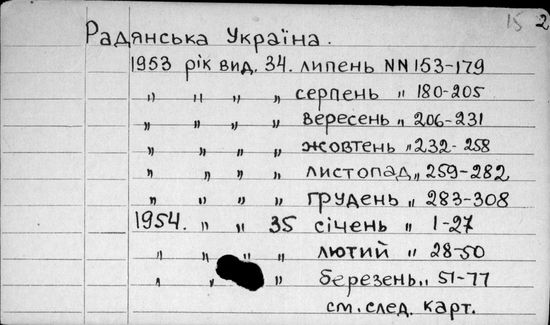 15 2
Радянська Україна.
1953 рік вид. 34. липень NN 153-179
" " " " серпень " 180-205
" " " " вересень " 206-231
" " " " жовтень " 232-258
" " " " листопад " 259-282
" " " " грудень " 283-308
1954. " " 35 січень " 1-27
" " " " лютий " 28-50
" " " березень " 51-77
см. след. карт.